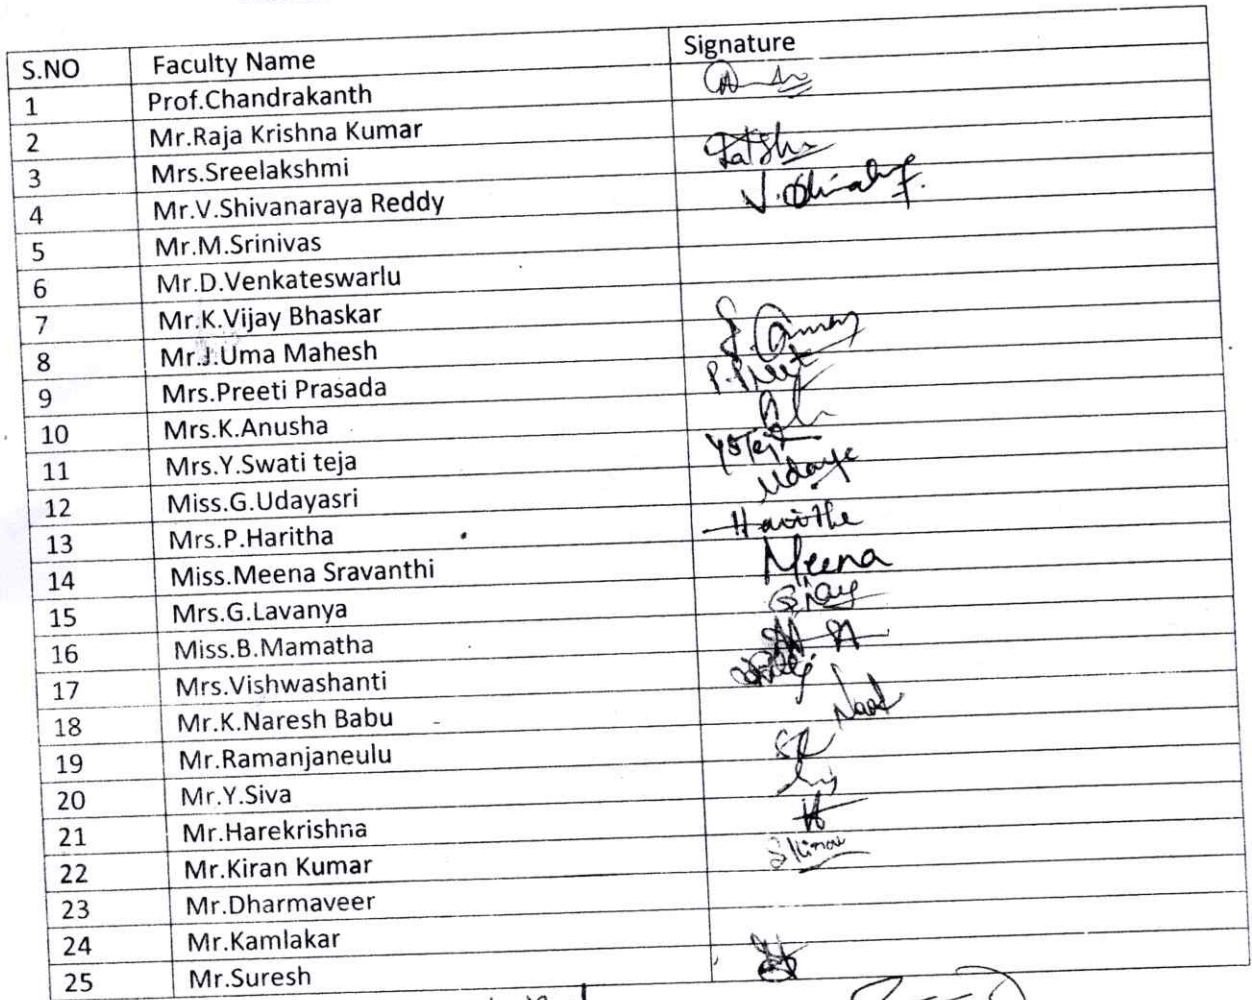 S.NO Faculty Name Signature
1 Prof.Chandrakanth
2 Mr.Raja Krishna Kumar
3 Mrs.Sreelakshmi
4 Mr.V.Shivanaraya Reddy
5 Mr.M.Srinivas
6 Mr.D.Venkateswarlu
7 Mr.K.Vijay Bhaskar
8 Mr.J.Uma Mahesh
9 Mrs.Preeti Prasada P.Preeti
10 Mrs.K.Anusha
11 Mrs.Y.Swati teja
12 Miss.G.Udayasri Udaya
13 Mrs.P.Haritha Haritha
14 Miss.Meena Sravanthi Meena
15 Mrs.G.Lavanya
16 Miss.B.Mamatha
17 Mrs.Vishwashanti
18 Mr.K.Naresh Babu
19 Mr.Ramanjaneulu
20 Mr.Y.Siva
21 Mr.Harekrishna
22 Mr.Kiran Kumar
23 Mr.Dharmaveer
24 Mr.Kamlakar
25 Mr.Suresh